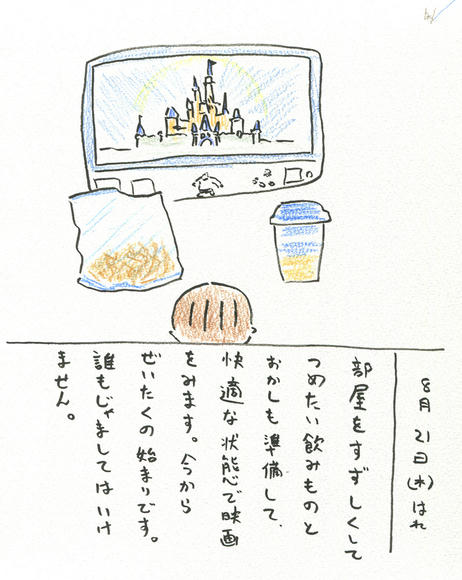 8月21日(水)はれ
部屋をすずしくして
つめたい飲みものと
おかしも準備して、
快適な状態で映画
をみます。今から
ぜいたくの始まりです。
誰もじゃましてはいけ
ません。